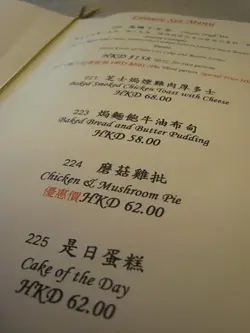 Set Menu
HKD $158
221 芝士焗煙雞肉厚多士
Baked Smoked Chicken Toast with Cheese
HKD 68.00
223 焗麵飽牛油布甸
Baked Bread and Butter Pudding
HKD 58.00
224 磨菇雞批
Chicken & Mushroom Pie
優惠價HKD 62.00
225 是日蛋糕
Cake of the Day
HKD 62.00